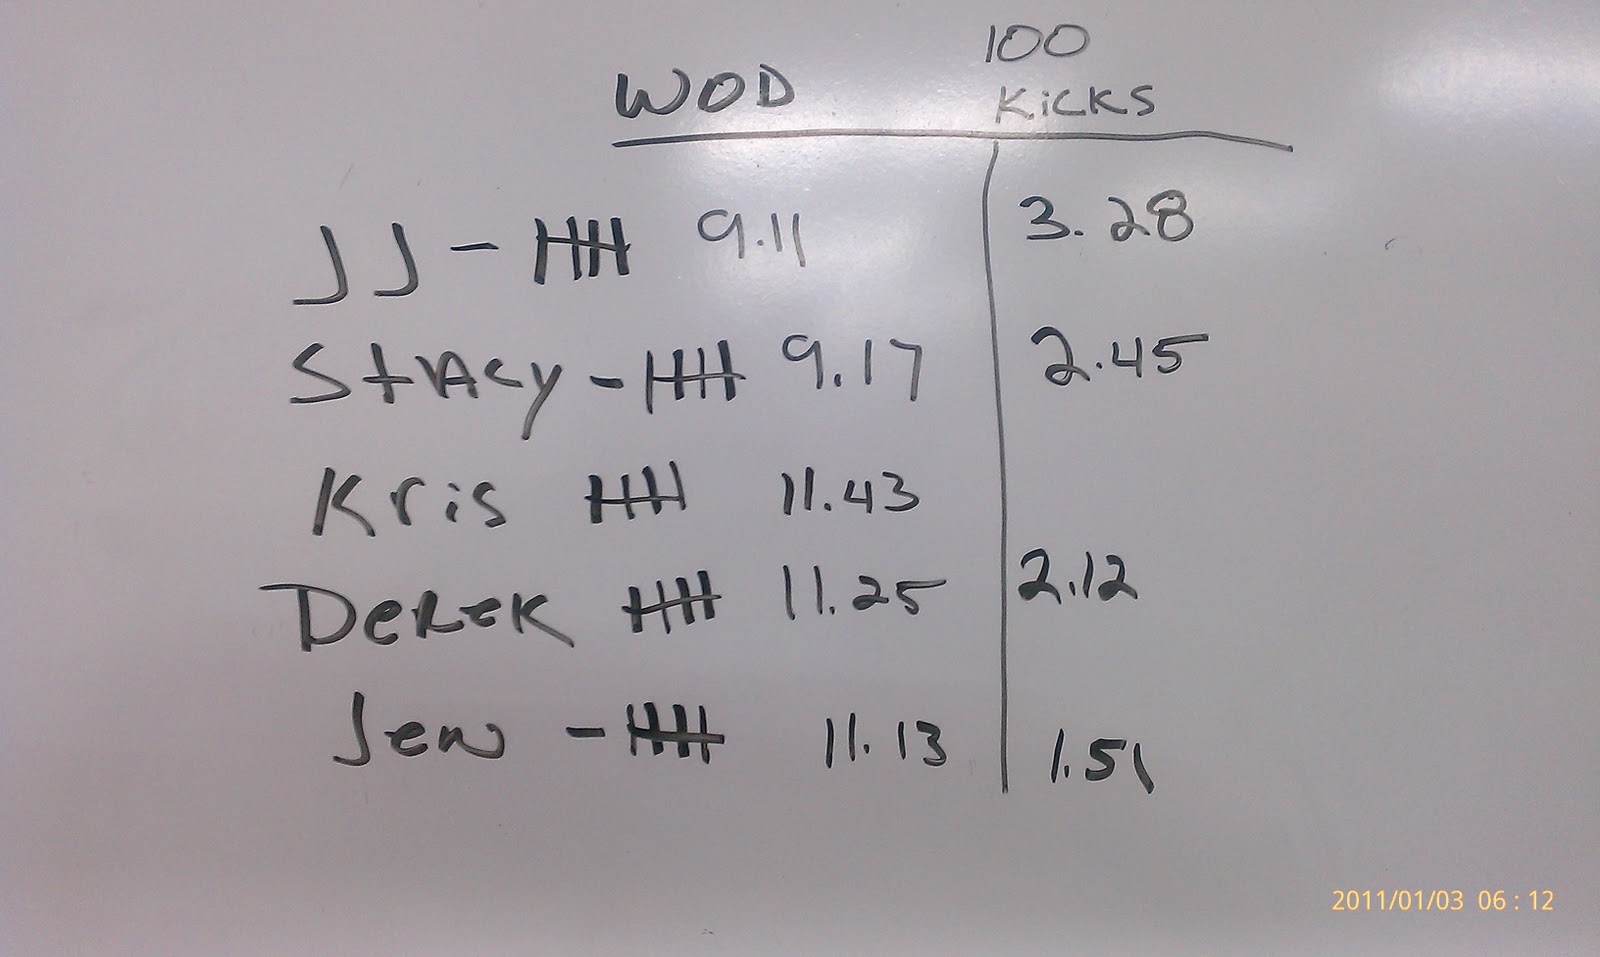 WOD 100 Kicks
JJ - 卌 9.11 3.28
Stacy - 卌 9.17 2.45
Kris 卌 11.43
Derek 卌 11.25 2.12
Jen - 卌 11.13 1.51
2011/01/03 06:12